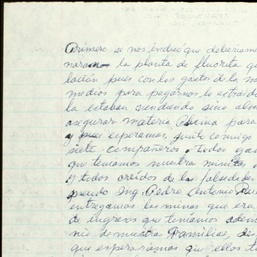 Primero se nos indicó que deberíamos
la planta de fluorita qu
lación pues con los gastos de la m
medios para pagarnos lo extraíd
la estaban vendiendo sino aba
asegurar materia prima para
y que esperaramos, junto conmigo
siete compañeros y todos
que teníamos nuestra minita,
y todos creídos de la falsedad
Ing. Pedro Antonio
entregamos las minas que era
de ingresos que teníamos adem
nio de nuestra familias,
que esperaríamos que ellos t